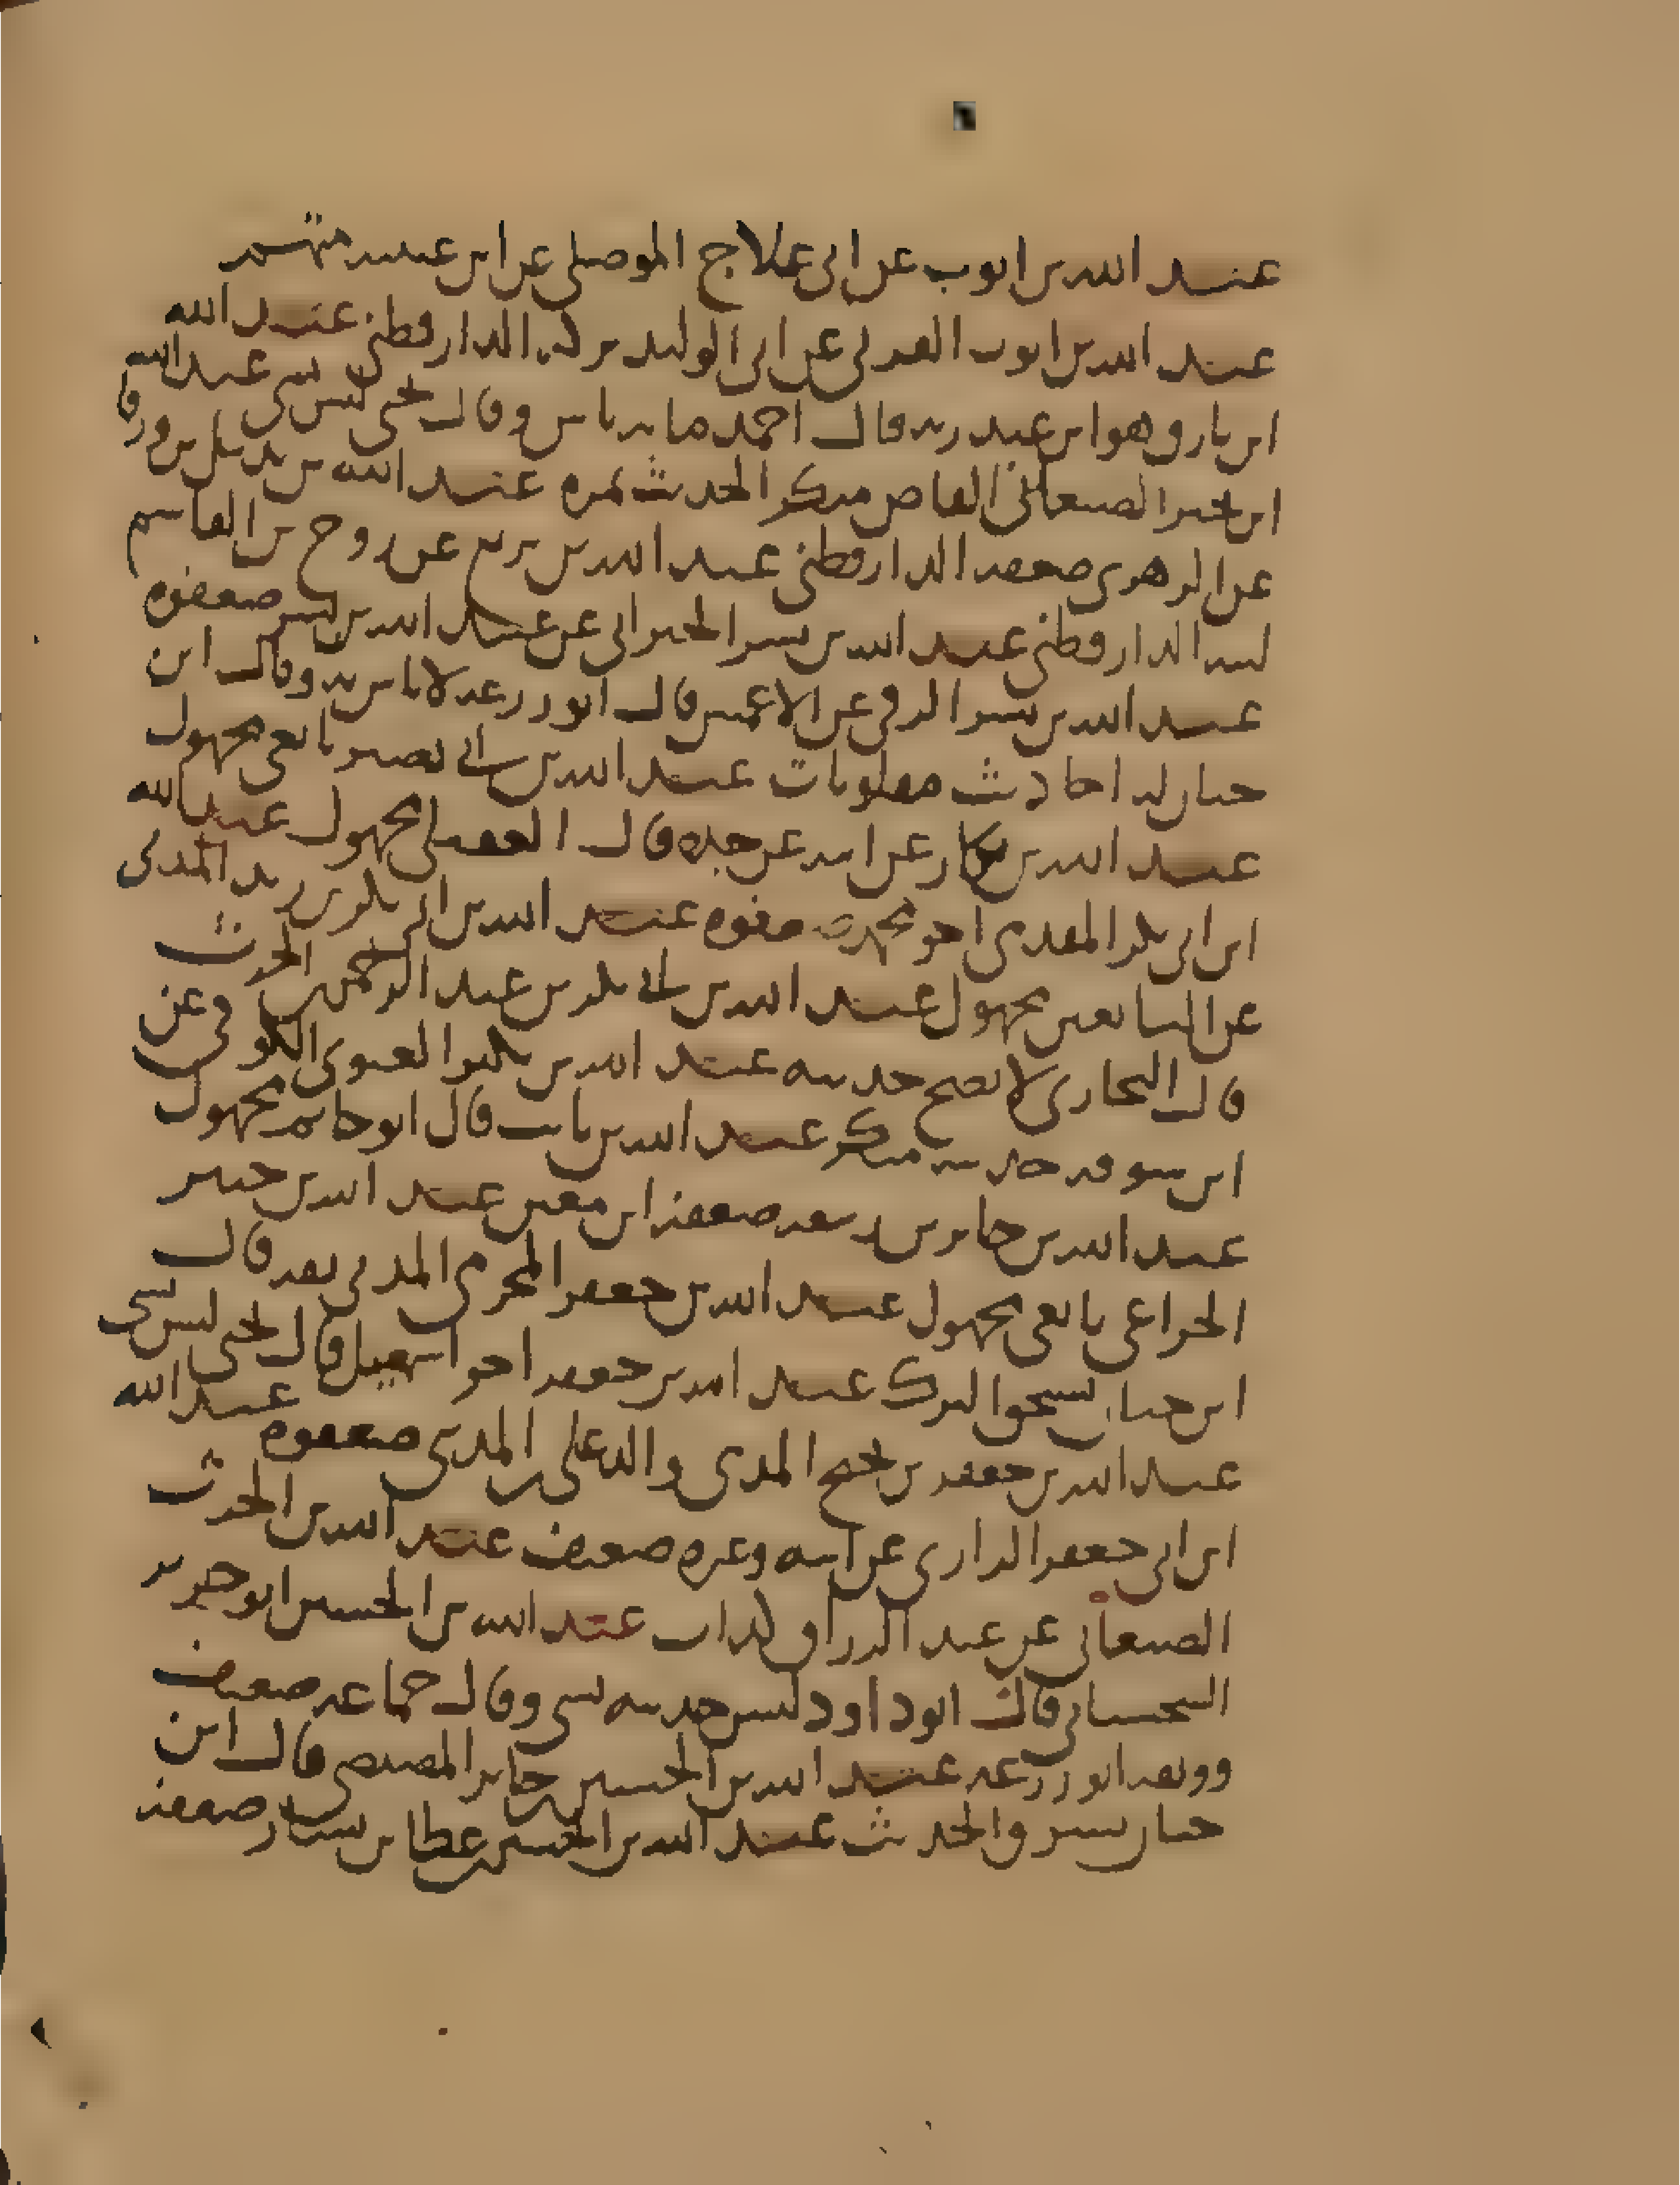 عبد الله بن ايوب عن ابي علاج الموصلي عن ابن عيينه متهم
عبد الله بن ايوب القربي عن ابي الوليد تركه الدارقطني عبد الله
ابن بارق وهو ابن عبد ربه قال احمد ما به باس وقال يحيى ليس بشي عبد الله
ابن بحير الصنعاني القاص منكر الحديث بمره عبد الله بن بديل بن ورقا
عن الزهري ضعفه الدارقطني عبد الله بن بزيع عن روح بن القاسم
لينه الدارقطني عبد الله بن بسر الحبراني عن عبد الله بن بسر ضعفوه
عبد الله بن بشر الرقي عن الاعمش قال ابو زرعه لا باس به وقال ابن
حبان له احاديث مقلوبات عبد الله بن ابي بصير تابعي مجهول
عبد الله بن بكار عن ابيه عن جده قال العقيلي مجهول عبد الله
ابن ابي بكر المقدمي اخو محمد ضعفوه عبد الله بن ابي بكر بن زيد المدني
عن التابعين مجهول عبد الله بن ابي بكر بن عبد الرحمن بن الحرث
قال البخاري لا يصح حديثه عبد الله بن بكير الغنوي الكوفي عن
ابن سوقه حديثه منكر عبد الله بن ثابت قال ابو حاتم مجهول
عبد الله بن جابر بن ربيعه ضعفه ابن معين عبد الله بن جبير
الخزاعي تابعي مجهول عبد الله بن جعفر المخرمي المدني ثقه قال
ابن حبان يستحق الترك عبد الله بن جعفر اخو اسمعيل قال يحيى ليس بشي
عبد الله بن جعفر بن نجيح المدني والد علي بن المديني ضعفوه عبد الله
ابن ابي جعفر الرازي عن ابيه وغيره ضعيف عبد الله بن الحرث
الصنعاني عن عبد الرزاق كذاب عبد الله بن الحسين ابو حريز
السجستاني قال ابو داود ليس حديثه بشي وقال جماعه ضعيف
ووثقه ابو زرعه عبد الله بن الحسين بن جابر المصيصي قال ابن
حبان يسرق الحديث عبد الله بن الحسين بن عطا بن يسار ضعفه